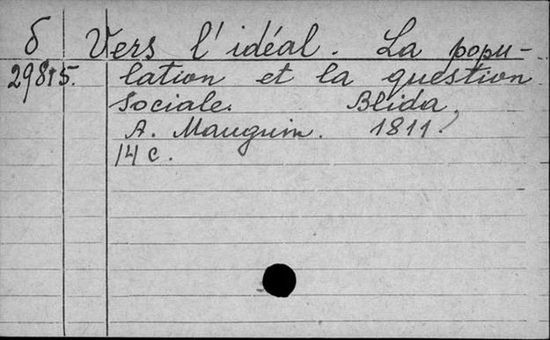 б Vers l'idéal. La popu-
29815. lation et la question
Sociale. Blida,
A. Mauguin. 1811!
14 c.